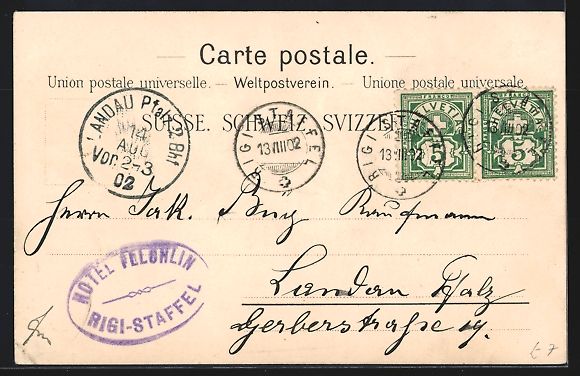 Carte postale.
Union postale universelle. – Weltpostverein. – Unione postale universale.
SUISSE. SCHWEIZ. SVIZZERA.
LANDAU Pfalz Bhf
14
AUG
Vor. 2-3
02
RIGI-STAFFEL
13.VIII.02
RIGI-STAFFEL
13.VIII.02
FRANCO
HELVETIA
5
FRANCO
HELVETIA
5
Herrn Jak. Bug Kaufmann
Landau Pfalz
Gerberstraße 19.
HOTEL FELCHLIN
RIGI-STAFFEL